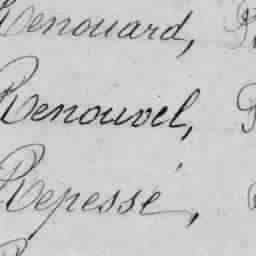 Renouard,
Renouvel,
Repessé,